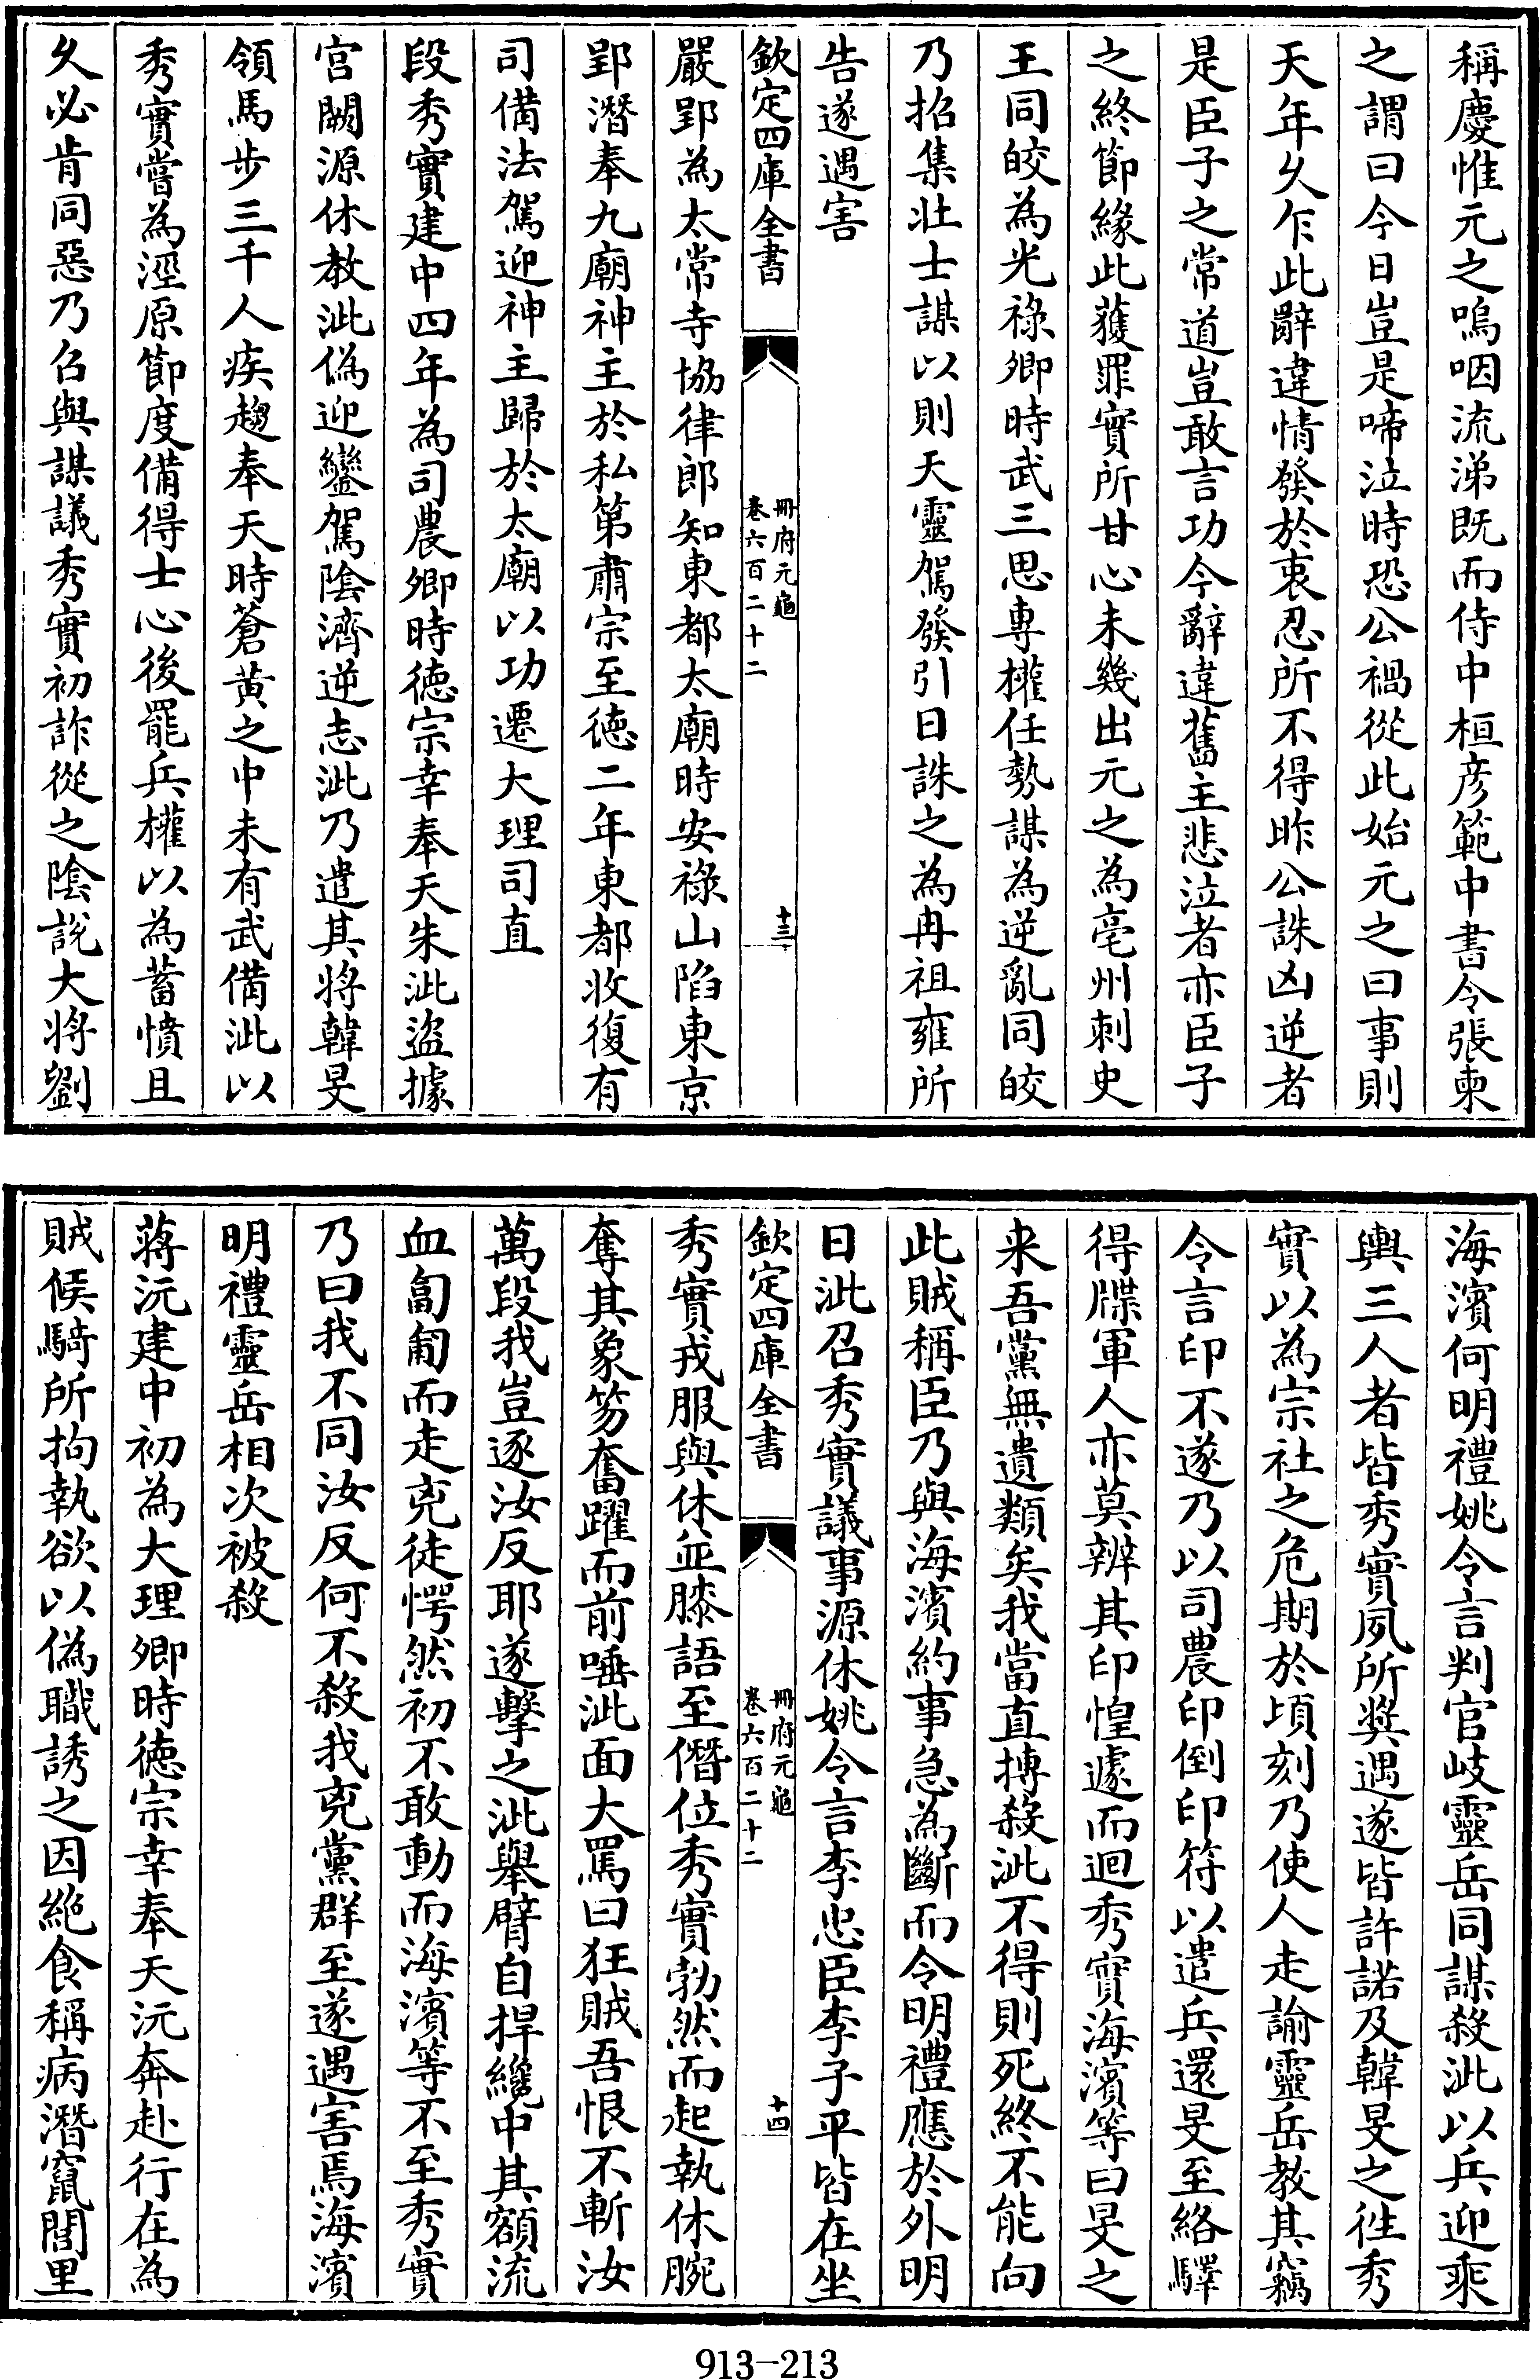 稱慶惟元之嗚咽流涕既而侍中桓彥範中書令張柬
之謂曰今日豈是啼泣時恐公禍從此始元之曰事則
天年久乍此辭違情發於衷忍所不得昨公誅凶逆者
是臣子之常道豈敢言功今辭違舊主悲泣者亦臣子
之終節緣此獲罪實所甘心未幾出元之為亳州刺史
王同皎為光祿卿時武三思專權任勢謀為逆亂同皎
乃招集壯士謀以則天靈駕發引日誅之為冉祖雍所
告遂遇害
欽定四庫全書
冊府元龜
卷六百二十二
十三
嚴郢為太常寺協律郎知東都太廟時安祿山陷東京
郢潛奉九廟神主於私第肅宗至徳二年東都收復有
司備法駕迎神主歸於太廟以功遷大理司直
段秀實建中四年為司農卿時徳宗幸奉天朱泚盜據
宮闕源休教泚偽迎鑾駕陰濟逆志泚乃遣其將韓旻
領馬步三千人疾趨奉天時蒼黄之中未有武備泚以
秀實嘗為涇原節度備得士心後罷兵權以為蓄憤且
久必肯同惡乃召與謀議秀實初詐從之陰説大將劉
海濱何明禮姚令言判官岐靈岳同謀殺泚以兵迎乘
輿三人者皆秀實夙所奬遇遂皆許諾及韓旻之徃秀
實以為宗社之危期於頃刻乃使人走諭靈岳教其竊
令言印不遂乃以司農印倒印符以遣兵還旻至絡驛
得牒軍人亦莫辨其印惶遽而迴秀實海濱等曰旻之
来吾黨無遺類矣我當直搏殺泚不得則死終不能向
此賊稱臣乃與海濱約事急為斷而令明禮應於外明
日泚召秀實議事源休姚令言李忠臣李子平皆在坐
欽定四庫全書
冊府元龜
卷六百二十二
十四
秀實戎服與休並膝語至僭位秀實勃然而起執休腕
奪其象笏奮躍而前唾泚面大罵曰狂賊吾恨不斬汝
萬段我豈逐汝反耶遂擊之泚舉臂自捍纔中其額流
血匍匐而走兇徒愕然初不敢動而海濱等不至秀實
乃曰我不同汝反何不殺我兇黨群至遂遇害焉海濱
明禮靈岳相次被殺
蔣沇建中初為大理卿時徳宗幸奉天沇奔赴行在為
賊候騎所拘執欲以偽職誘之因絶食稱病潛竄閭里
913-213